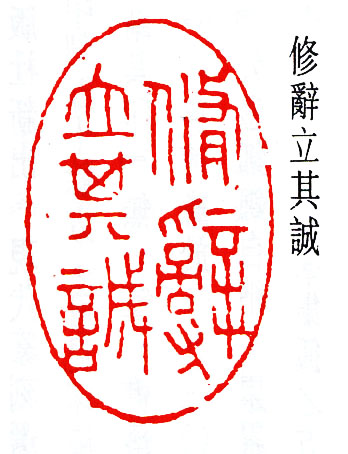 修辭立其誠
修辭
立其誠